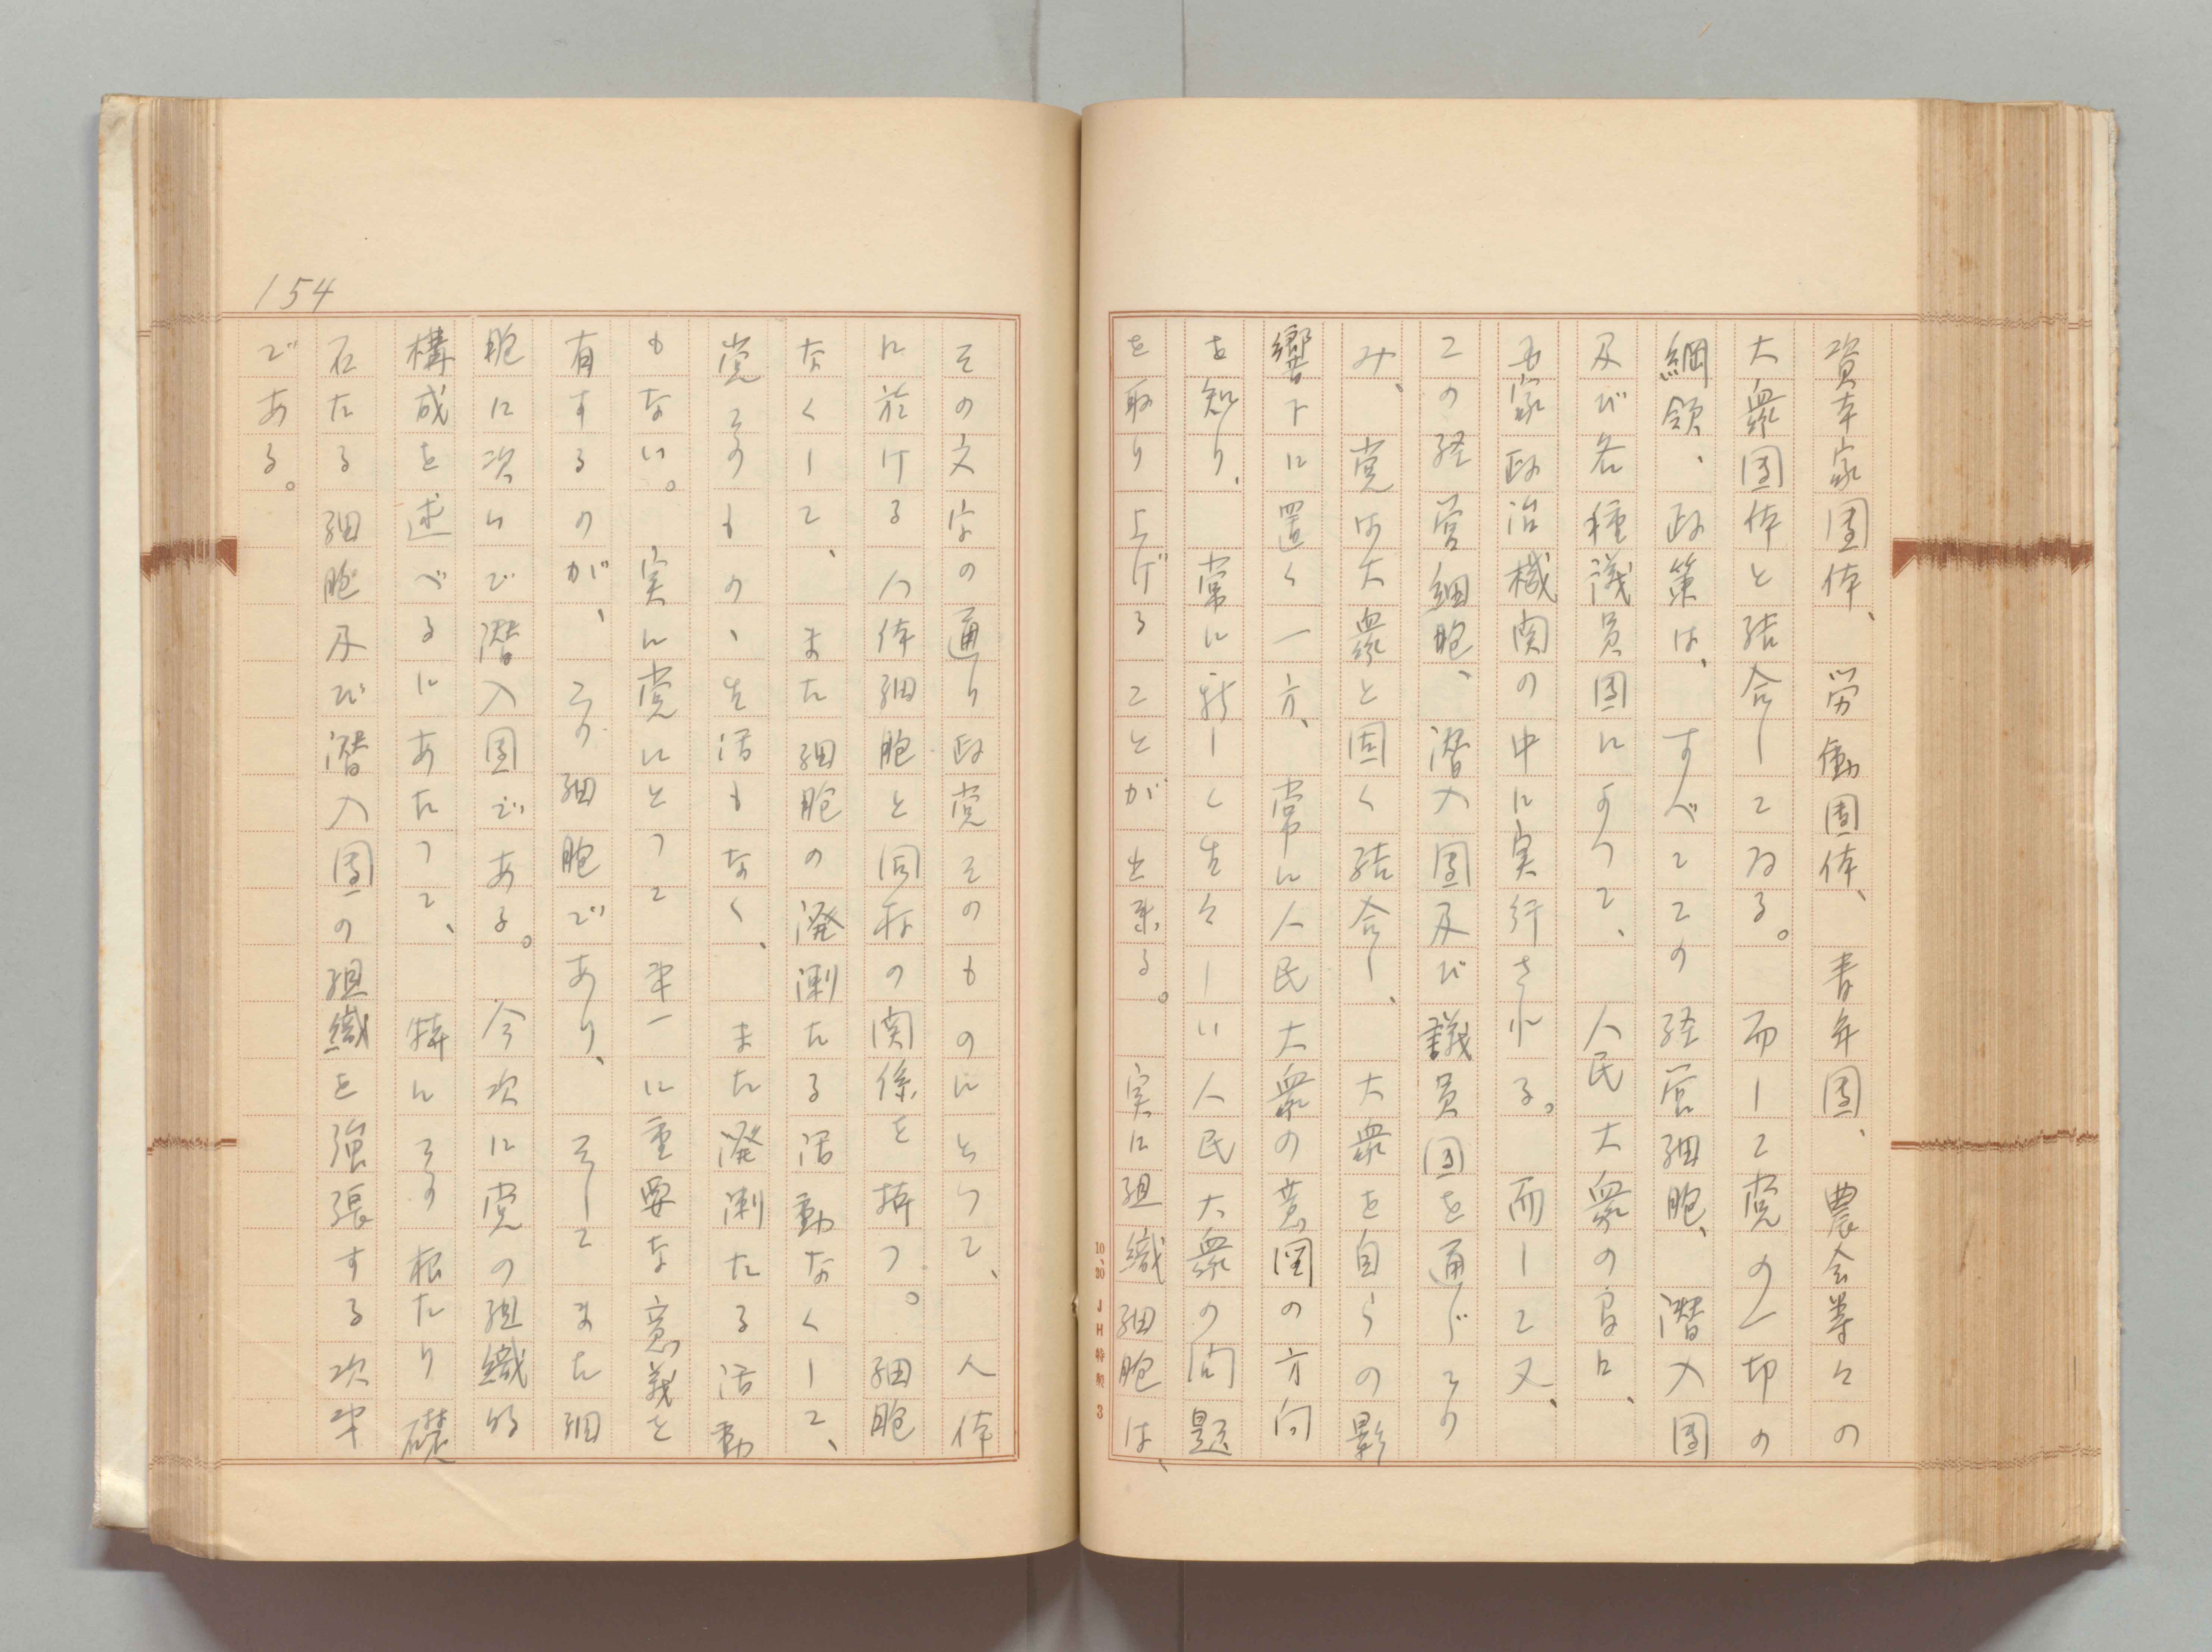 資本家団体、労働団体、青年団、農会等々の
大衆団体と結合してゐる。而して党の一切の
綱領、政策は、すべてこの経営細胞、潜入団
及び各種議員団によつて、人民大衆の
国家政治機関の中に実行される。而して又、
この経営細胞、潜入団及び議員団を通じその
み、党は大衆と固く結合し、大衆を自らの影
響下に置く一方、常に人民大衆の意図の方向
を知り、常に新しく生々しい人民大衆の問題
を取り上げることが出来る。実に組織細胞は、
10、20 JH特製 3
その文字の通り政党そのものにとつて、人体
に於ける人体細胞と同様の関係を持つ。細胞
なくして、また細胞の溌溂たる活動なくして、
党そのもの、生活もなく、また溌溂たる活動
もない。実に党にとつて第一に重要な意義を
有するのが、この細胞であり、そしてまた細
胞に次いで潜入団である。今次に党の組織的
構成を述べるにあたつて、特にその根たり礎
石たる細胞及び潜入団の組織を強張する次第
である。
154